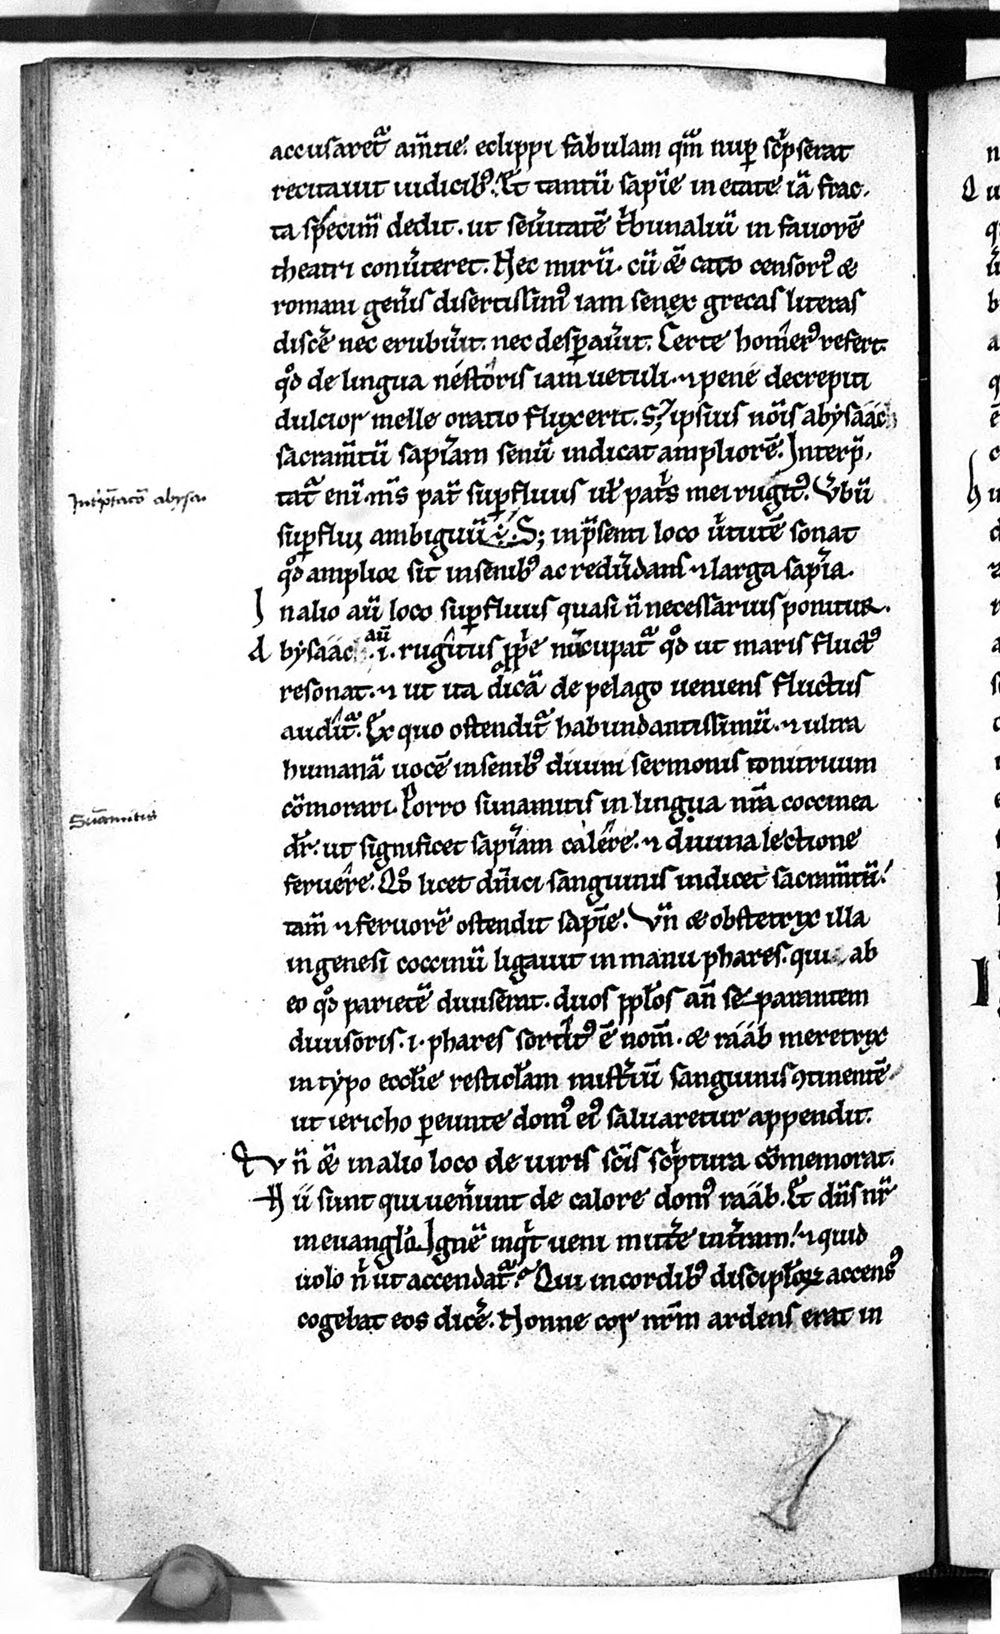 accusaret᷑ am̅tie. eclippi fabulam qm̅ nup̱ sc̍pserat
recitauit iudicib᷒. Et tantu̅ sapi̅e in etate ia̅ frac-
ta speci̅m̅ dedit. ut seu̍itate̅ t̍bunaliu̅ in fauore̅
theatri conu̍teret. Nec miru̅. cu̅ & cato censori᷒ &
romani gen̍is disertissim᷒ iam senex grecas literas
disce̍ nec erubu̍it. nec desp̱au̍it. Certe homer᷒ refert.
qd̅ de lingua nestoris iam uetuli. ⁊ pene decrepiti
dulcior melle oratio fluxerit. S; ipsius no̅is abysaach
sacram̅tu̅ sapi̅am senu̅ indicat ampliore̅. Interp̅-
Int̍p̅tatio̅ abysa.
tat᷑ eni̅. m̅s pat̅ sup̱fluus ul̅ pat̍s mei rugit᷒. V̍bu̅
sup̱fluu̅ ambiguu̅ .i. S; in p̅senti loco u̍tute̅ sonat
qd̅ amplior sit in senib᷒ ac redu̅dans ⁊ larga sapi̅a.
In alio au̅ loco sup̱fluus quasi n̅ necessarius ponitur.
Abysaach au̅ .i. rugitus p̱p̍e nu̅cupat᷑ qd̅ ut maris fluct᷒
resonat. ⁊ ut ita dica̅ de pelago ueniens fluctus
audit᷑. Ex quo ostendit᷑ habundantissimu̅. ⁊ ultra
humana̅ uoce̅ in senib᷒ diuini sermonis tonitruum
co̅morari. Porro sunamitis in lingua nr̅a coccinea
Su̅amitis
dr̅. ut significet sapi̅am calere. ⁊ diuina lectione
feruere. Qd̅ licet dn̅ici sanguinis indicet sacram̅tu̅.
tam̅ ⁊ feruore̅ ostendit sapi̅e. Vn̅ & obstetrix illa
in genesi coccinu̅ ligauit in manu phares. qui ab
eo qd̅ pariete̅ diuiserat. duos pp̅los an̅ se parantem
diuisoris. i. phares sortit᷒ e̅ nom̅. & raab meretrix
in typo eccl̅ie restic̅lam mist̍iu̅ sanguinis ꝯtinente̅
ut iericho p̱eunte dom᷒ ei᷒ saluaretur appendit.
Vn̅ & in alio loco de uiris sc̅is sc̍ptura co̅memorat.
Hii sunt qui uen̍unt de calore dom᷒ raab. Et dn̅s nr̅
in euanglo̅. Igne̅ inq̍t ueni mitte̍ in t̍ram. ⁊ quid
uolo n̍ ut accendat᷑? Qui in cordib᷒ discipl̅oꝝ accens᷒
cogebat eos dice̍. Nonne cor nr̅m ardens erat in